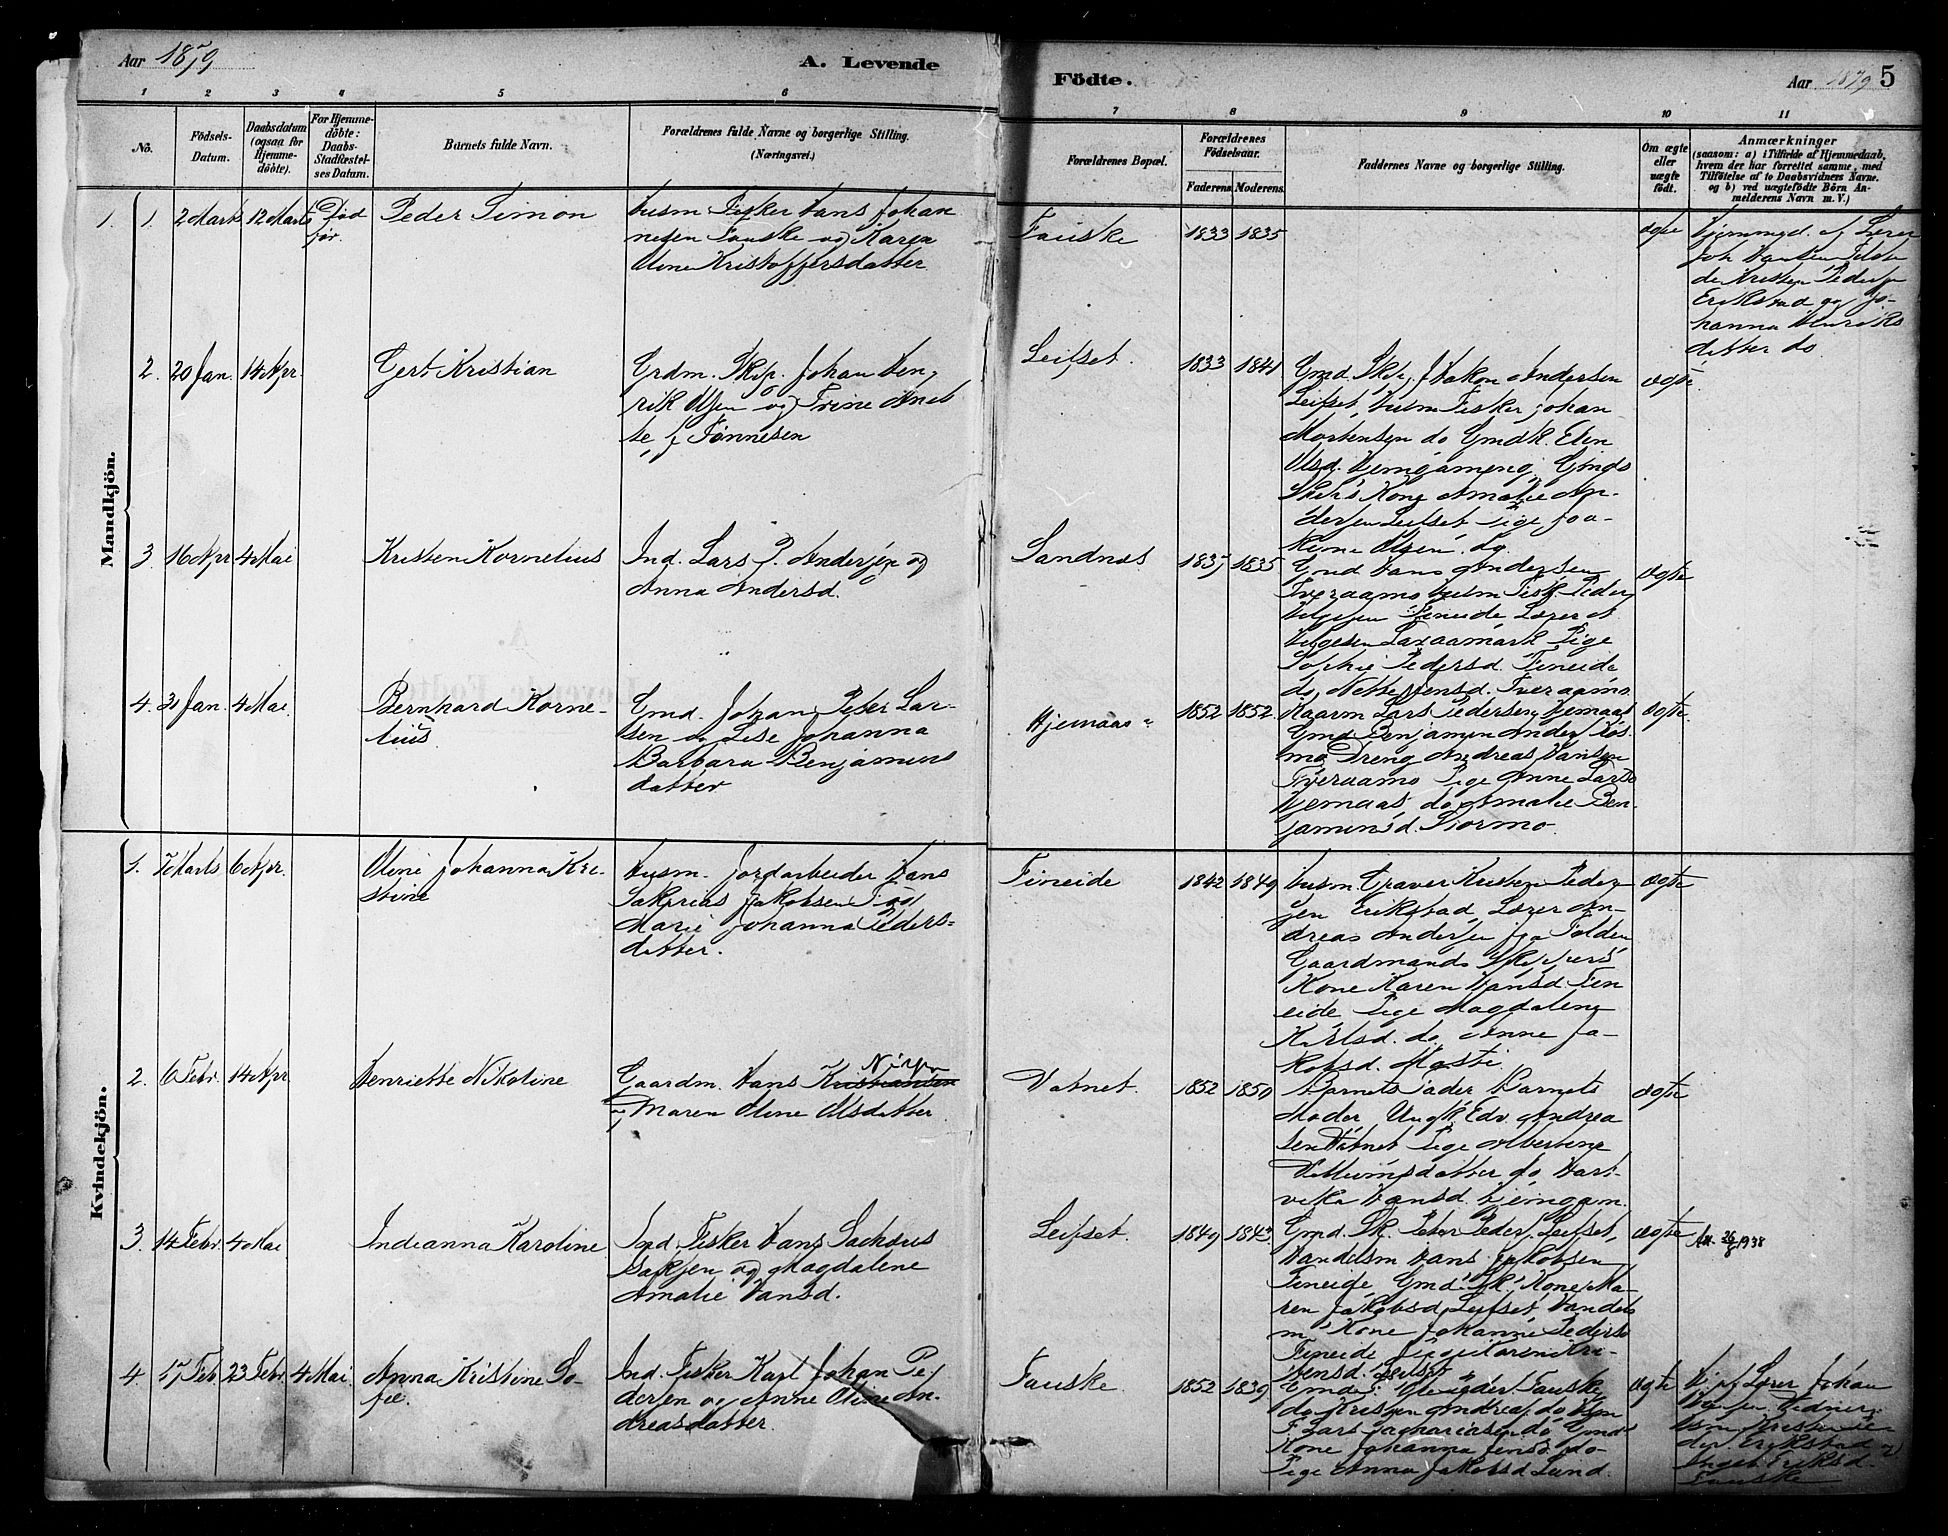 Aar 1879
A. Levende
Födte.
Aar 1879
5
1
2
3
4
5
6
7
8
9
10
11
No.
Födsels-
Datum.
Daabsdatum
(ogsaa for
Hjemme-
döbte).
For Hjemme-
döbte:
Daabs-
Stadfæstel-
ses Datum.
Barnets fulde Navn.
Forældrenes fulde Navne og borgerlige Stilling.
(Næringsvei.)
Forældrenes Bopæl.
Forældrenes
Födselsaar.
Faderens.
Moderens.
Faddernes Navne og borgerlige Stilling.
Om ægte
eller
uægte
födt.
Anmærkninger
(saasom: a) i Tilfælde af Hjemmedaab,
hvem der har forrettet samme, med
Tilföielse af to Daabsvidners Navne.
og b) ved uægtefödte Börn An-
melderens Navn m. V.)
Mandkjön.
1. 1. 2 Marts 12 Marts Död
før.
Peder Simon
Husm Fisker Hans Johan
nesen Fauske og Karen
Oline Kristoffersdatter
Fauske
1833 1835
ægte
Hjemmed. af Lærer
Joh Hansen
Kristen Peders
Erikstad og Jo-
hanna Henriks
datter do
2. 20 Jan. 14 Apr.
Gert Kristian
Grdm. Skip. Johan Hen,
rik Olsen og Trine Anet
te f Tønnesen
Leifset.
1833 1841
Gmd. Håkon Andersen
Leifset, Husm Fisker Johan
Mortensen do Gmdk. Elen
Olsd. Gmds
Kone Amalie An-
dersen Leifset Pige Joa-
kime Olsen. do.
ægte
3 16 Apr 4 Mai
Kristen Kornelius
Ind. Lars P. Andersen og
Anna Andersd.
Sandnæs
1837 1835
Gmd Hans Andersen
Tveraamo Husm Fisk. Peder
Helgesen Fineide Lærer
Helgesen Laxaamark Pige
Sophie Pedersd. Fineide
do Nette Jensd. Tveraamo
ægte
4. 31 Jan. 4 Mai.
Bernhard Korne-
lius
Gmd. Johan Peter Lar-
sen og Lise Johanna
Barbara Benjamins
datter
Hjemaas
1852 1852.
Kaarm Lars Pedersen Hjemaas
Gmd Benjamin Anders Kos
mo Dreng Andreas Hansen
Tveraamo Pige Anne Larsd
Hjemaas, do Amalie Ben
jaminsd. Stormo.
ægte.
Kvindekjön.
1. 7 Marts 6 Apr.
Oline Johanna Kri-
stine
Husm. Jordarbeider Hans
Sakarias Jakobsen og
Marie Johanna Peders-
datter.
Fineide
1842 1849
Husm. Graver Kristen Peder
sen Erikstad Lærer An-
dreas Andersen
Gaardmands Skippers
Kone Karen Hansd Fin
eide Pige Magdalene
Karlsd. do Anne Ja-
kobsd. Mosti
ægte
2. 6 Febr. 14 Apr
Henriette Nikoline
Gaardm. Hans Kristiansen
og Maren Oline Olsdatter
Vatnet.
1852 1850
Barnets Fader Barnets
Moder Ungk. Edv. Andrea
sen Vatnet Pige Albertine
Villumsdatter do Hart-
vika Hansd.
ægte
3. 14 Febr. 4 Mai
Indianna Karoline
Ind. Fisker Hans Sachæus
Isaksen og Magdalene
Amalie Hansd.
Leifset.
1849 1843.
Gmd. Sk. Peter Peders. Leifset,
Handelsm Hans Jakobsen
Fineide Gmd. Sk. Kone Ma-
ren Jakobsd Leifset, Handels
m. Kone Johanne Pedersd
Fineide Pige Karen Kri-
stensd. Leifset
ægte
Att. 26/8 1938
4. 17 Feb. 23 Febr. 4 Mai
Anna Kristine So-
fie.
Ind. Fisker Karl Johan Pe,
dersen og Anne Oline An-
dreasdatter
Fauske
1852 1839
Gmd. Ole Peder Fauske
do Kristen Andreas. do
F. Lars Zachariasen do Gmd
Kone Johanna Jensd. do
Pige Anna Jakobsd Lund.
ægte
Lærer Johan
Hansen. Vidner:
Husm Kristen Pe
der Erikstad og
Inger Eriksd.
Fauske